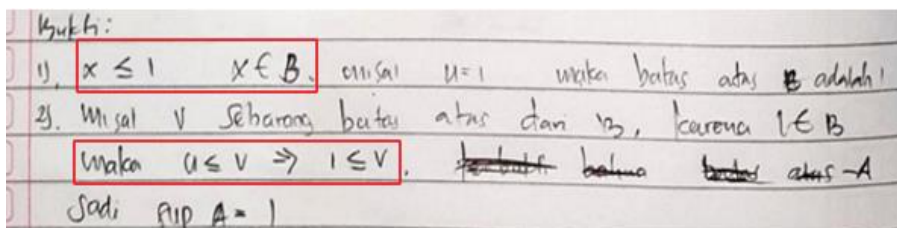 Bukti:
1). x ≤ 1 x ∈ B. misal u=1 maka batas atas B adalah 1
2). Misal V Sebarang batas atas dari B, karena 1 ∈ B
maka u ≤ v ⇒ 1 ≤ v. terbukti bahwa batas atas A
Jadi sup A = 1